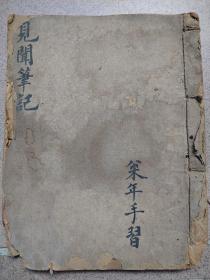 見聞筆記
年手習